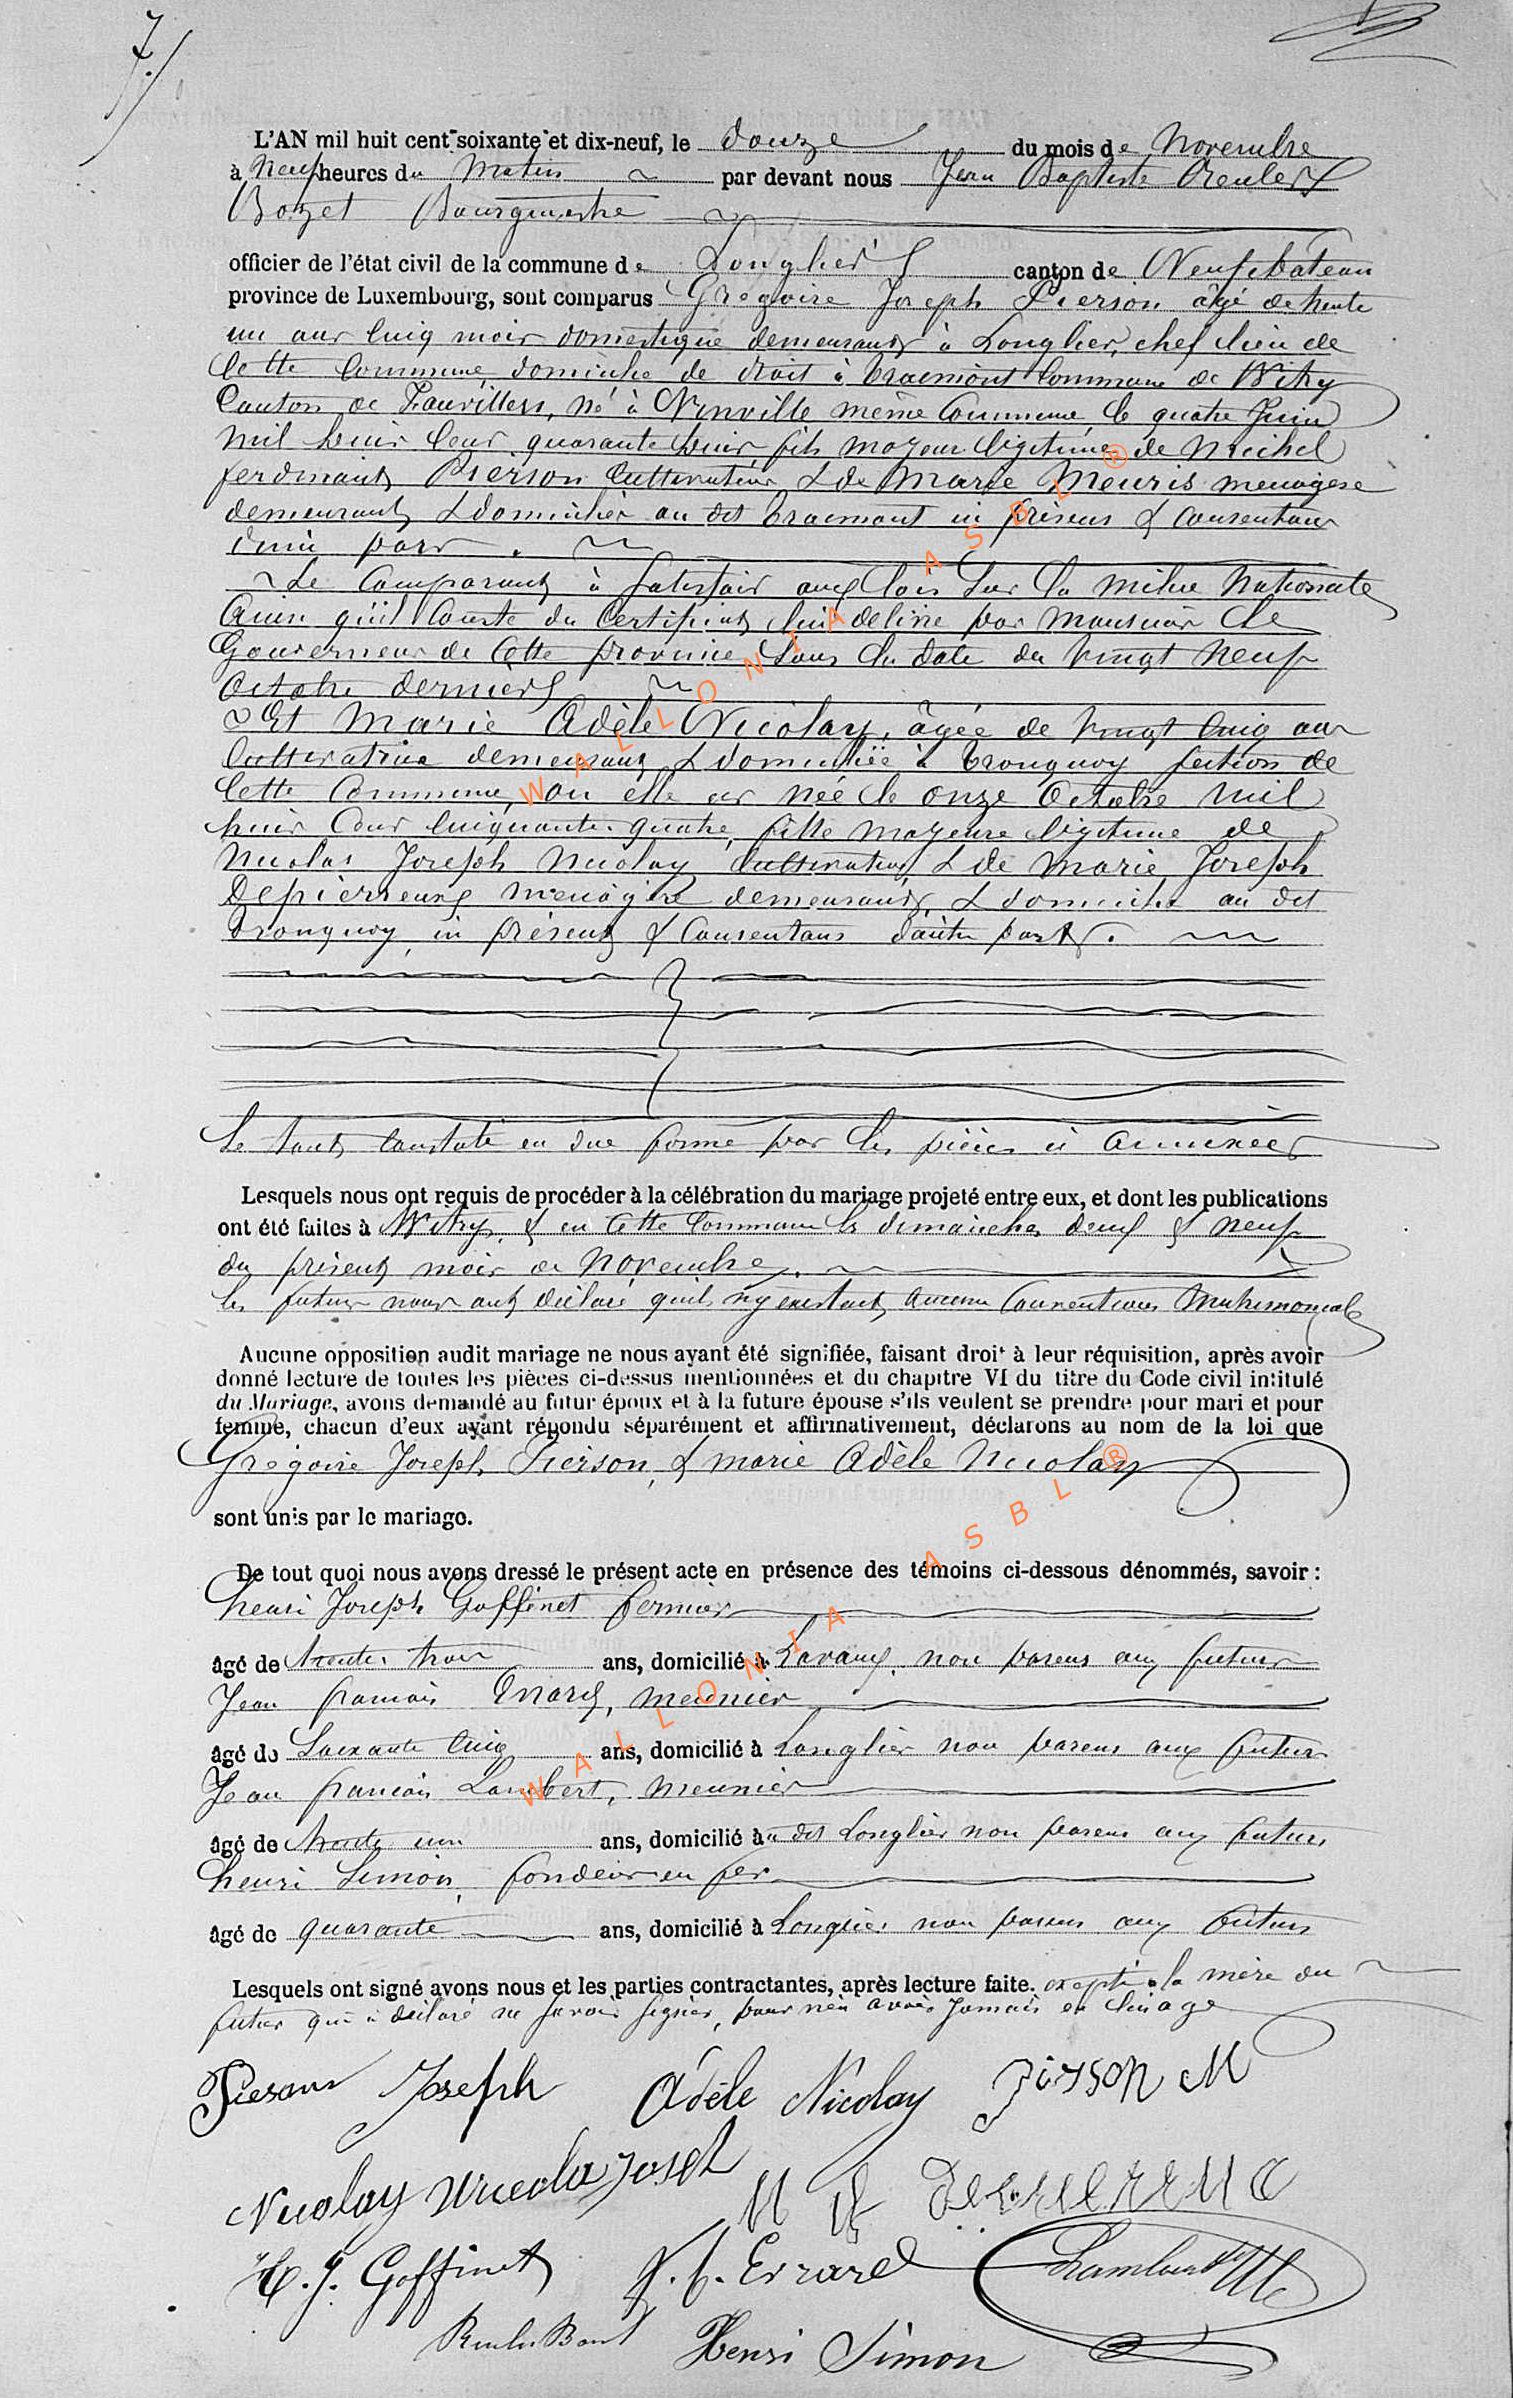 7/.
L'AN mil huit cent soixante et dix-neuf, le douze du mois de Novembre
à Neuf heures du Matin par devant nous Jean Baptiste
Bozet Bourgmestre
officier de l'état civil de la commune de Longlier canton de Neufchateau
province de Luxembourg, sont comparus Grégoire Joseph Pierson âgé de trente
un ans cinq mois domestique demeurant à Longlier, chef lieu de
Cette Commune, domicilié de droit à Traimont Commune de Witry
Canton de Fauvillers, né à Winville même Commune, le quatre Juin
mil huit Cent quarante huit, fils majeur légitime de Michel
ferdinand Pierson Cultivateur & de Marie Meuris menagere
demeurant & domiciliés au dit Traimont ici présens & Consentans
d'une part.
Le Comparant à satisfait aux lois sur la milice Nationale
Ainsi qu'il Conste du Certificat lui délivré par Monsieur Le
Gouverneur de Cette province sous la date du Vingt Neuf
Octobre dernier
Et Marie Adèle Nicolay, âgée de Vingt Cinq ans
Cultivatrice demeurant & domiciliée à Tronquoy section de
Cette Commune, où elle est née le onze Octobre mil
huit Cent Cinquante-quatre, fille majeure légitime de
Nicolas Joseph Nicolay Cultivateur & de Marie Joseph
Depierreux ménagère demeurant & domiciliés au dit
Tronquoy, ici présent & Consentans d'autre part.
Le tout Constaté en due forme par les pièces ci Annexées
Lesquels nous ont requis de procéder à la célébration du mariage projeté entre eux, et dont les publications
ont été faites à Witry & en Cette Commune les dimanches deux & neuf
du présent mois de Novembre.
les futurs nous ont déclaré qu'il n'y existait aucune Conventions Matrimoniale
Aucune opposition audit mariage ne nous ayant été signifiée, faisant droit à leur réquisition, après avoir
donné lecture de toutes les pièces ci-dessus mentionnées et du chapitre VI du titre du Code civil intitulé
du Mariage, avons demandé au futur époux et à la future épouse s'ils veulent se prendre pour mari et pour
femme, chacun d'eux ayant répondu séparément et affirmativement, déclarons au nom de la loi que
Grégoire Joseph Pierson, & Marie Adèle Nicolay
sont unis par le mariage.
De tout quoi nous avons dressé le présent acte en présence des témoins ci-dessous dénommés, savoir :
henri Joseph Goffinet fermier
âgé de trente trois ans, domicilié à Lavaux, non parens aux futurs
Jean francois Errard, meunier
âgé de Soixante Cinq ans, domicilié à Longlier non parens aux futurs
Jean francois Lambert, meunier
âgé de trente un ans, domicilié à dit Longlier non parens aux futurs
henri Simon, fondeur en fer
âgé de quarante ans, domicilié à Longlier non parens aux futurs
Lesquels ont signé avons nous et les parties contractantes, après lecture faite. excepté la mère du
futur qui à déclaré ne savoir signer, pour n'en avoir jamais eu l'usage
Pierson Joseph Adèle Nicolay Pierson M
Nicolay Nicolas Joseh M J
H. J. Goffinet J. f. Errard Lambert
Henri Simon
WALLONIA ASBL ®
WALLONIA ASBL ®